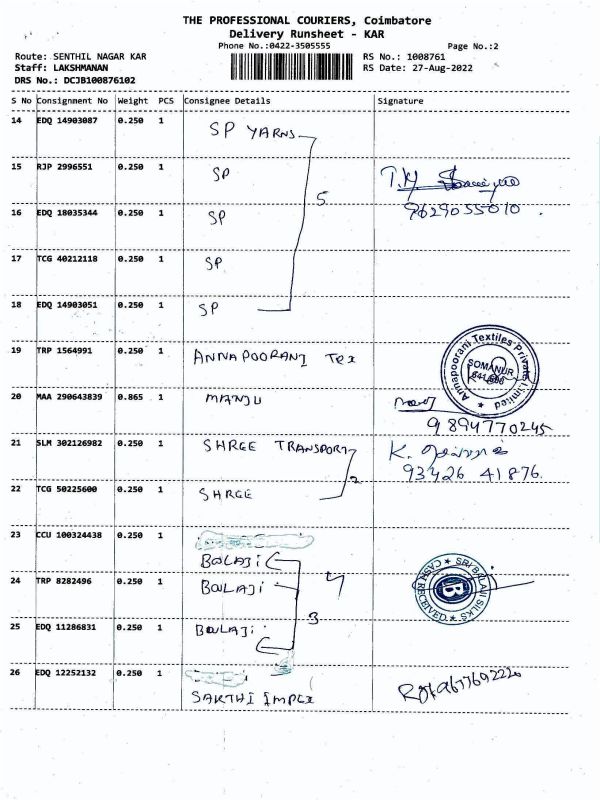 THE PROFESSIONAL COURIERS, Coimbatore
Delivery Runsheet - KAR
Phone No.:0422-3505555
Page No.:2
Route: SENTHIL NAGAR KAR
RS No.: 1008761
Staff: LAKSHMANAN
RS Date: 27-Aug-2022
DRS No.: DCJB100876102
S No Consignment No Weight PCS Consignee Details Signature
14 EDQ 14903087 0.250 1 SP YARNS
15 RJP 2996551 0.250 1 SP T.M
5
16 EDQ 18035344 0.250 1 SP 9629055010
17 TCG 40212118 0.250 1 SP
18 EDQ 14903051 0.250 1 SP
19 TRP 1564991 0.250 1 ANNAPOORANI Tex
Annapoorani Textiles Private Limited
SOMANUR
20 MAA 290643839 0.865 1 MANJU
9894770245
21 SLM 302126982 0.250 1 SHREE TRANSPORT K.
93426 41876
2
22 TCG 50225600 0.250 1 SHREE
23 CCU 100324438 0.250 1
BALAJI
24 TRP 8282496 0.250 1 BALAJI
SRI BALAJI SILKS
CASH RECEIVED
B
3
25 EDQ 11286831 0.250 1 BALAJI
26 EDQ 12252132 0.250 1
SAKTHI IMPEX